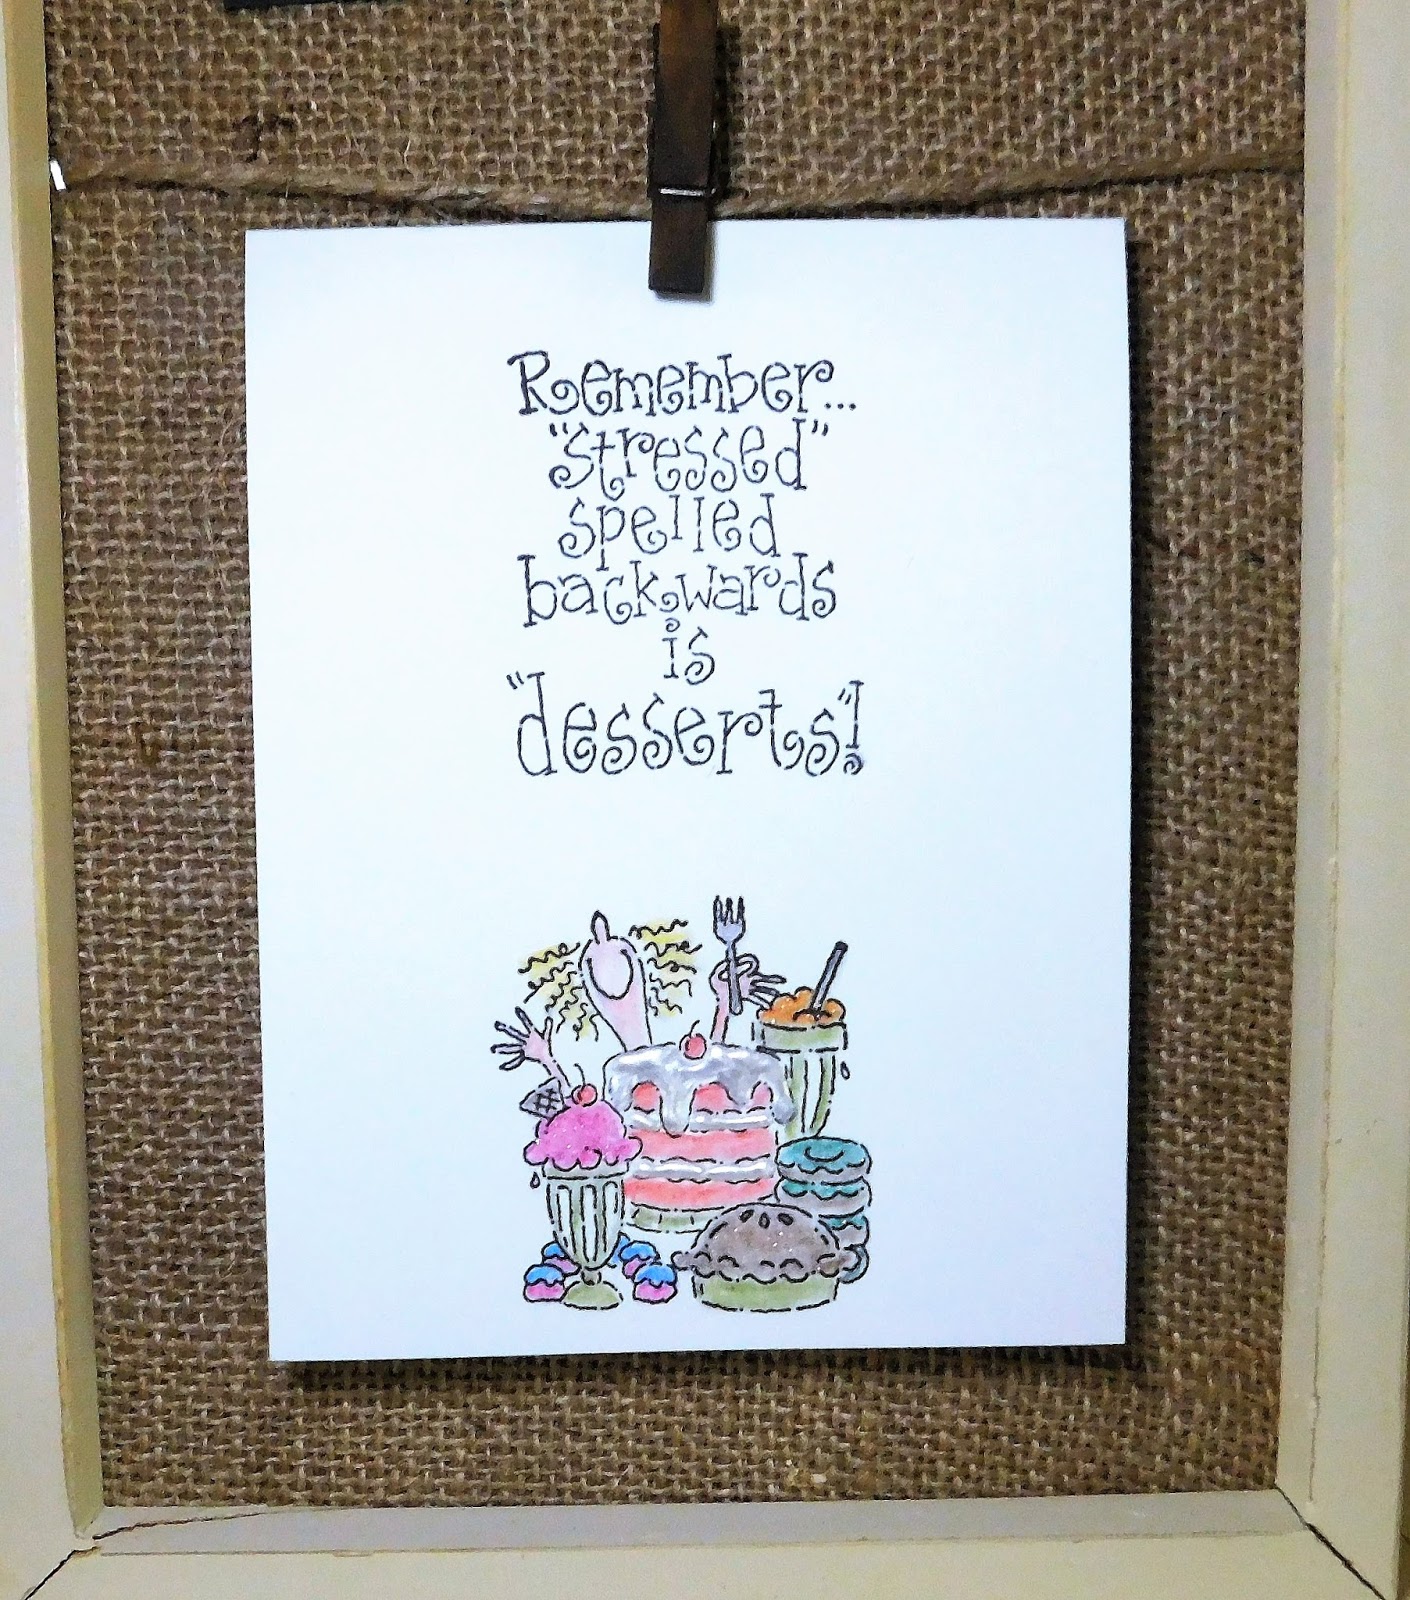 Remember...
"stressed"
spelled
backwards
is
"desserts"!